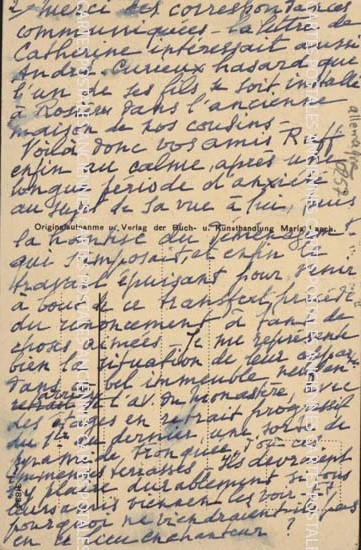 2 merci des correspondances
communiquées - La lettre de
Catherine intéressait aussi
André. Curieux hasard que
l'un de ses fils se soit installé
à Rosières dans l'ancienne
maison de nos cousins -
Voilà donc vos amis Ruff
enfin au calme, après une
longue période d'anxiété
au sujet de sa vue à lui, puis
Originalaufnahme u. Verlag der Buch- u. Kunsthandlung Maria Laach.
la hantise du déménagement
qui s'imposait et enfin le
travail épuisant pour venir
à bout de ce transfert précédé
du renoncement à tant de
choses aimées - Je me représente
bien la situation de leur appart
dans ce bel immeuble neuf en
retrait l'av. du monastère, avec
des étages en retrait progressif
du 1er au dernier, une sorte de
pyramide tronquée, d'où ces
immenses terrasses - Ils devraient
s'y plaire durablement si tous
leurs amis viennent les voir, et
pourquoi ne viendraient-ils pas
en ce lieu enchanteur ?